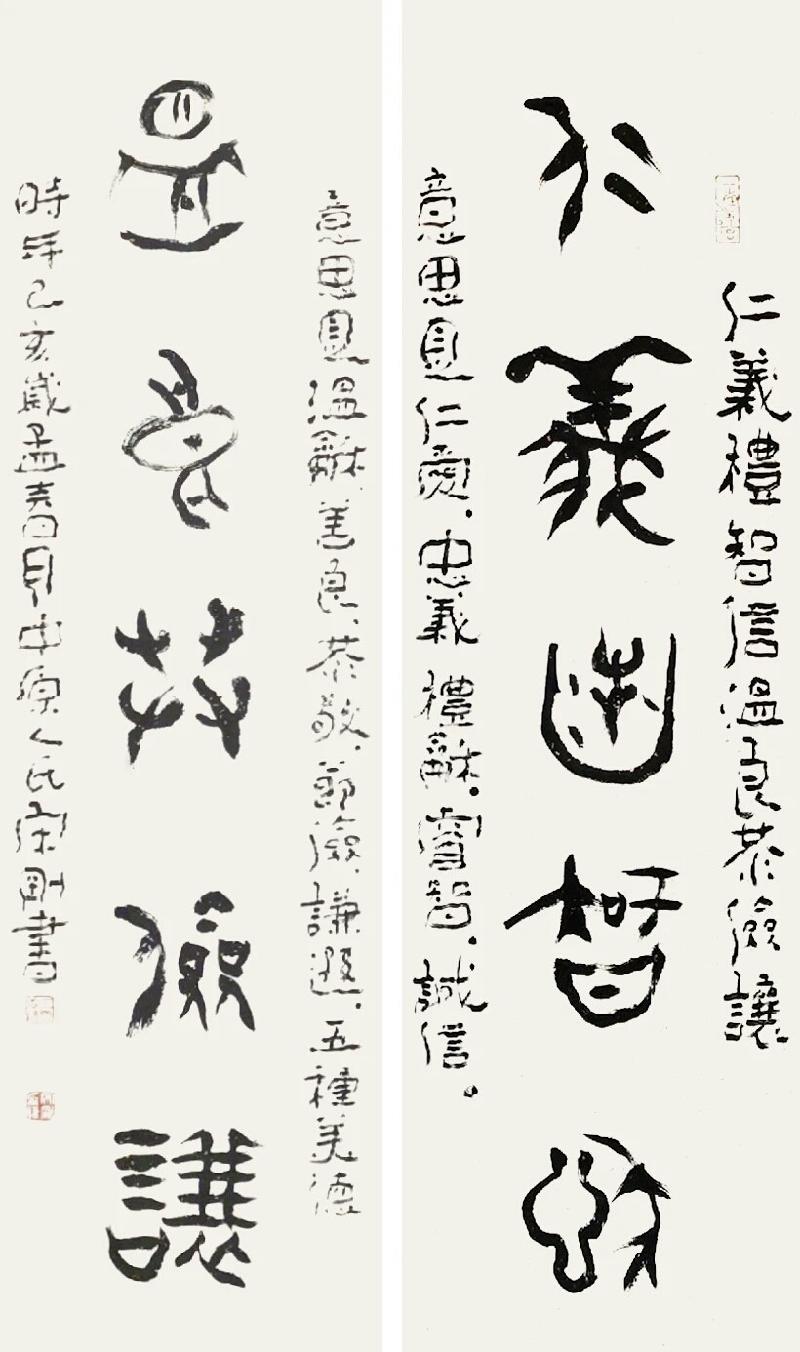 仁義禮智信溫良恭儉讓
仁義禮智信
意思是仁愛．忠義禮龢．睿智．誠信．
意思是溫龢．善良．恭敬．節儉．謙遜．五種美德
溫良恭儉讓
時年己亥歲孟春月中原人氏宋剛書